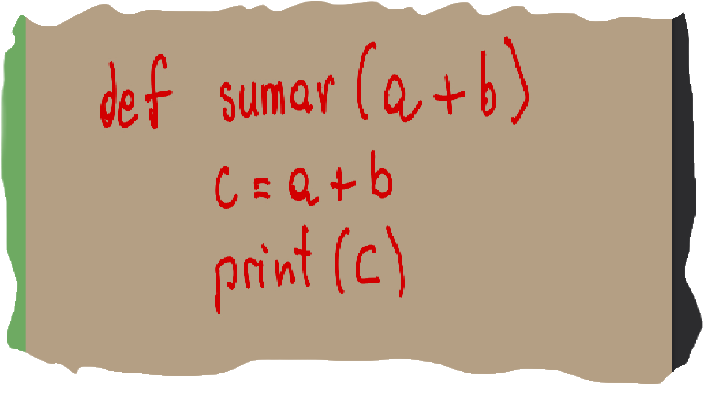 def sumar (a+b)
c = a + b
print (c)